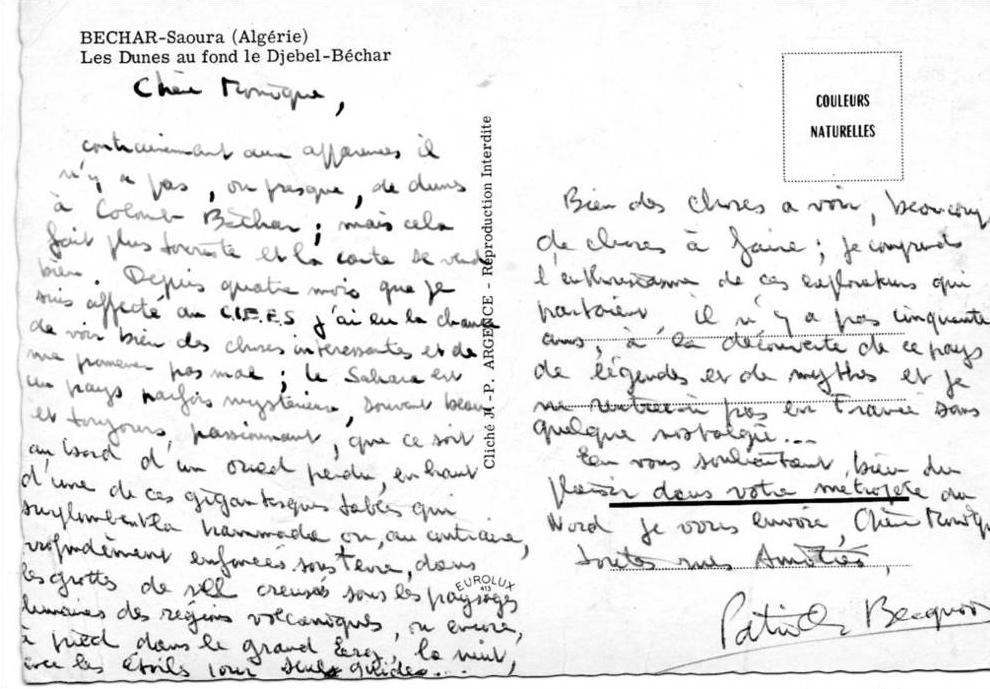 BECHAR-Saoura (Algérie)
Les Dunes au fond le Djebel-Béchar
Chère Monique,
contrairement aux apparences il
n'y a pas, ou presque, de dunes
à Colomb Béchar ; mais cela
fait plus touriste et la carte se vend
bien. Depuis quatre mois que je
suis affecté au C.I.E.E.S j'ai eu la chance
de voir bien des choses interessantes et de
me promener pas mal ; le Sahara est
un pays parfois mystérieux, souvent beau
et toujours, passionnant, que ce soit
au bord d'un oued perdu, en haut
d'une de ces gigantesques tables qui
surplombent la hammada ou, au contraire,
profondément enfoncées sous terre, dans
les grottes de sel creusées sous les paysages
lunaires des régions volcaniques, ou encore,
à pied dans le grand Erg, la nuit,
avec les étoiles pour seuls guides...
Cliché M.-P. ARGENCE - Reproduction Interdite
EUROLUX
COULEURS
NATURELLES
Bien des choses a voir, beaucoup
de choses à faire ; je comprends
l'enthousiasme de ces explorateurs qui
partaient il n'y a pas cinquante
ans, à la découverte de ce pays
de légendes et de mythes et je
ne rentrerai pas en France sans
quelque nostalgie...
En vous souhaitant bien du
plaisir dans votre métropole du
Nord je vous envoie, Chère Monique
toutes mes Amitiés,
Patrick